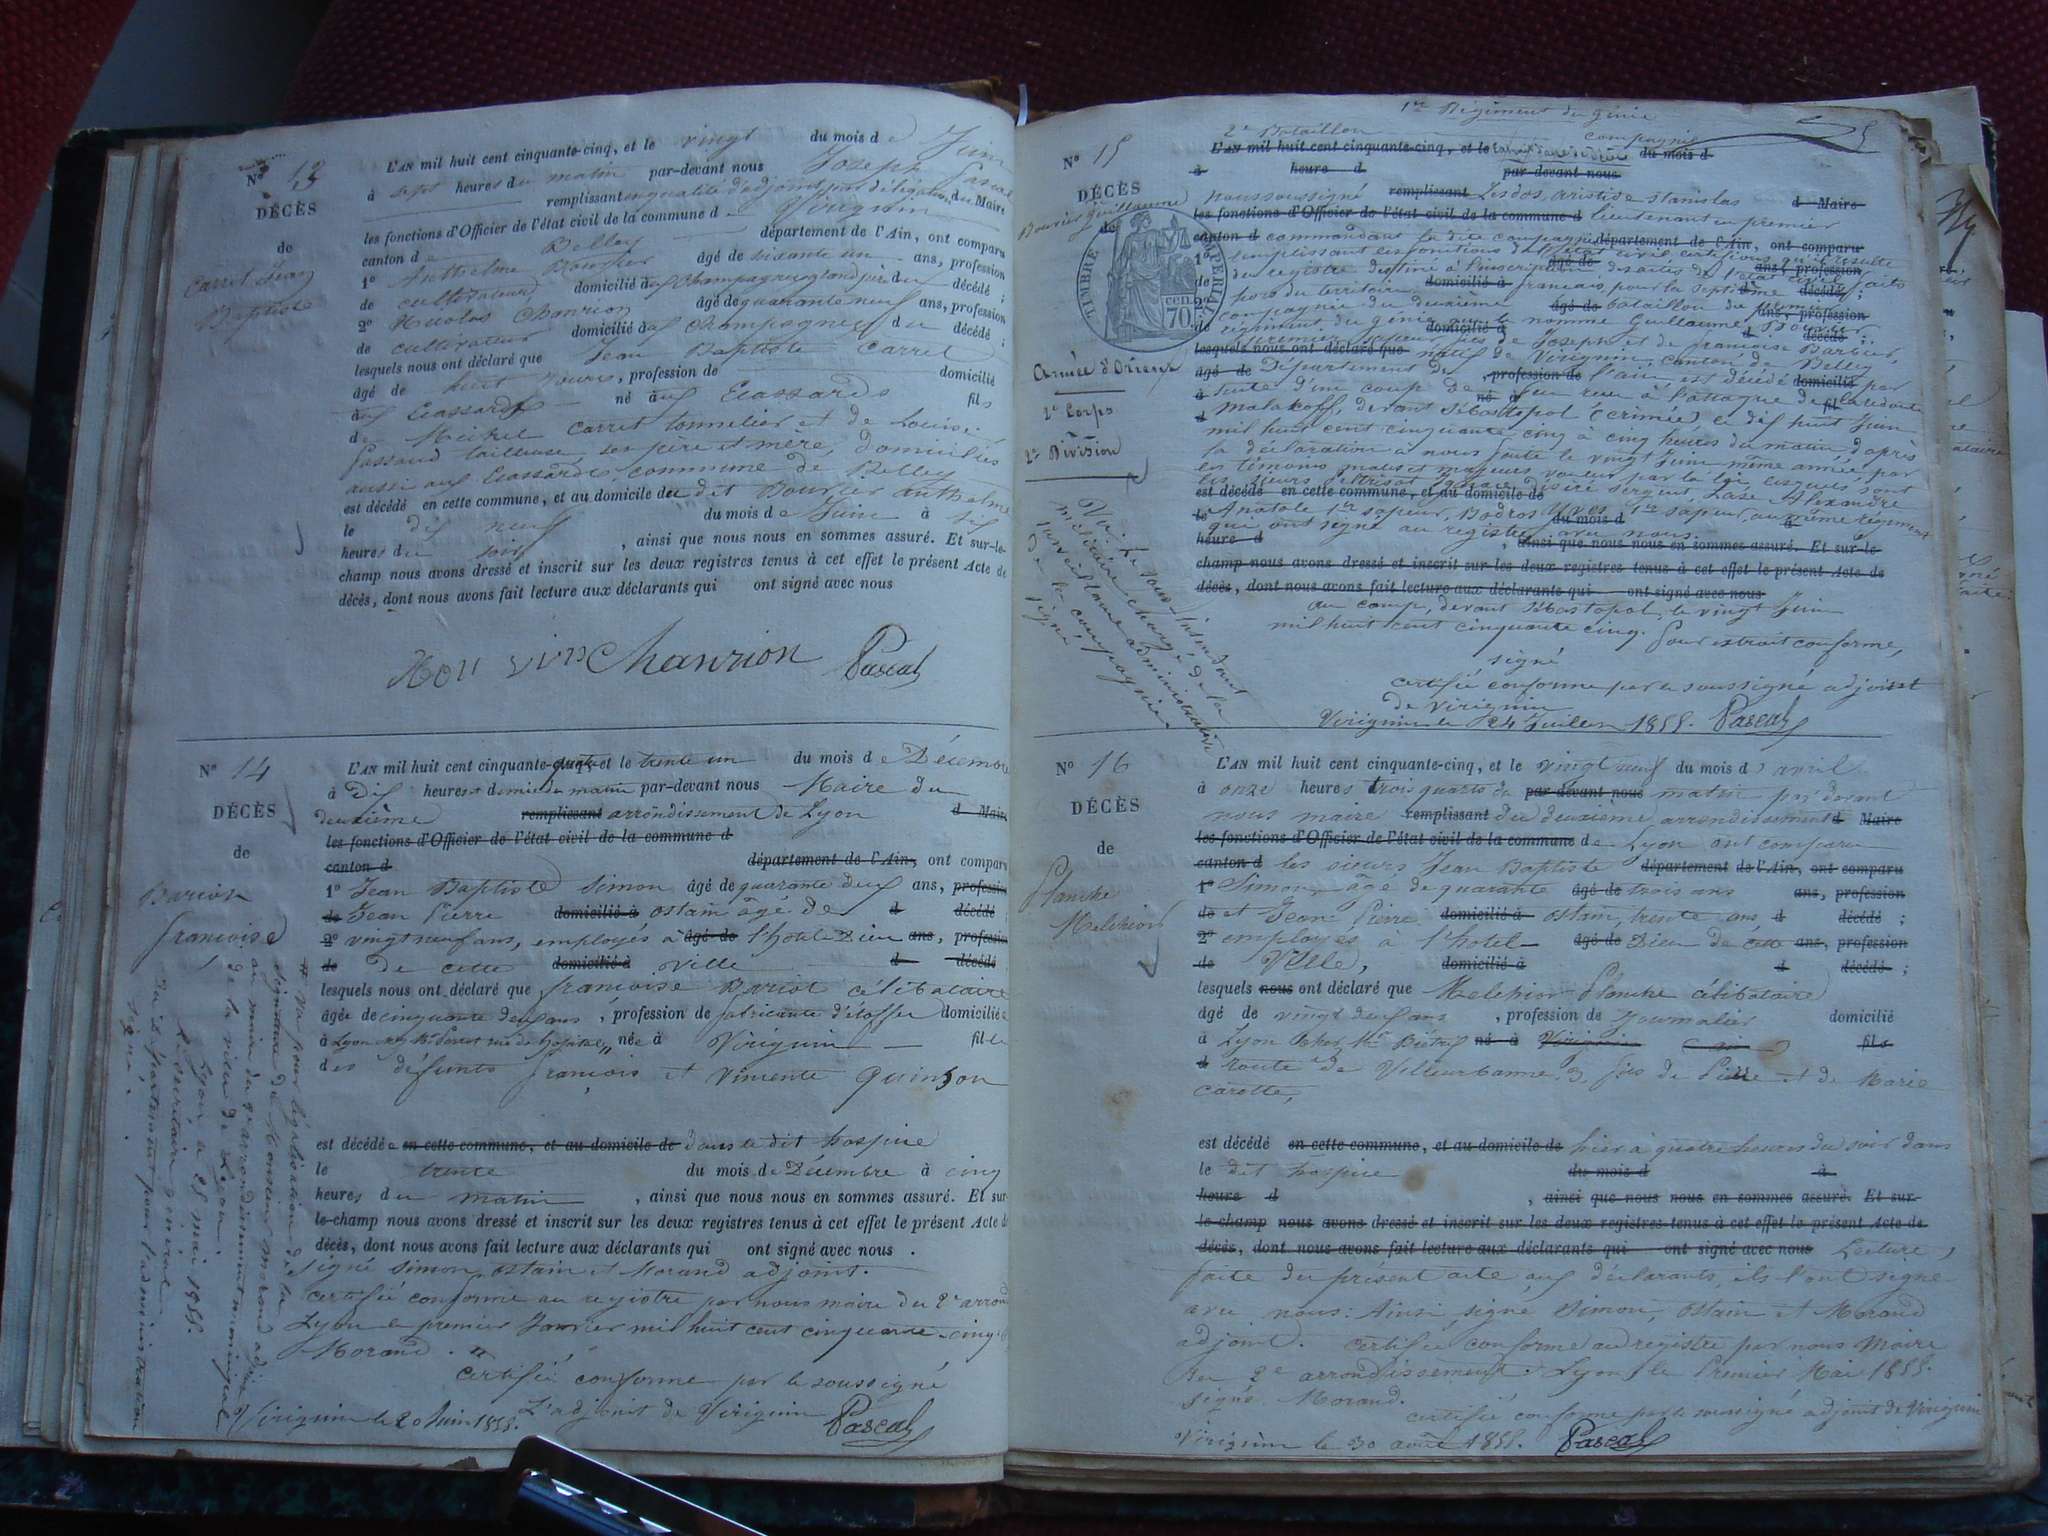 No 13
DÉCÈS
de
Carret Jean
Baptiste
L'AN mil huit cent cinquante-cinq, et le vingt du mois de Juin
à sept heures du matin par-devant nous Joseph Pascal
remplissant en qualité d'adjoint par délégation du Maire
les fonctions d'Officier de l'état civil de la commune de Virignin
canton de Belley département de l'Ain, ont comparu
1° Anthelme Bouvier âgé de soixante un ans, profession
de cultivateur domicilié à Champagne du décédé ;
2° Nicolas Chanrion âgé de quarante neuf ans, profession
de cultivateur domicilié aux Champagnes du décédé ;
lesquels nous ont déclaré que Jean Baptiste Carret
âgé de huit jours, profession de domicilié
aux Ecassards né aux Ecassards fils
de Michel Carret tonnelier et de Louise
Passaud tailleuse, ses père et mère, domiciliés
aussi aux Ecassards commune de Belley
est décédé en cette commune, et au domicile du dit Bouvier anthelme
le dix neuf du mois de Juin à six
heures du soir, ainsi que nous nous en sommes assuré. Et sur-le-
champ nous avons dressé et inscrit sur les deux registres tenus à cet effet le présent Acte de
décès, dont nous avons fait lecture aux déclarants qui ont signé avec nous
Chanrion Pascal
No 14
DÉCÈS
de
Bariot
françoise
L'AN mil huit cent cinquante-cinq, quatre et le trente un du mois de Décembre
à Dix heures et demie du matin par-devant nous Maire du
deuxième remplissant arrondissement de Lyon d Maire
les fonctions d'Officier de l'état civil de la commune d
canton d département de l'Ain, ont comparu
1° Jean Baptiste Simon âgé de quarante deux ans, profession
de Jean Pierre domicilié à Ostain âgé de d décédé ;
2° vingt neuf ans, employés à âgé de l'hotel Dieu ans, profession
de de cette domicilié à ville d décédé
lesquels nous ont déclaré que françoise Bariot célibataire
âgée de cinquante deux ans, profession de fabricante d'étoffes domiciliée
à Lyon née à Virignin fille
des défunts françois et Vincente Quinson
est décédée en cette commune, et au domicile de dans le dit hospice
le trente du mois de Décembre à cinq
heures du matin, ainsi que nous nous en sommes assuré. Et sur-
le-champ nous avons dressé et inscrit sur les deux registres tenus à cet effet le présent Acte de
décès, dont nous avons fait lecture aux déclarants qui ont signé avec nous.
signé Simon, Ostain et Morand adjoint.
certifié conforme au registre par nous maire du 2e arrond
Lyon le premier Janvier mil huit cent cinquante-cinq
Morand.
certifié conforme par le soussigné
L'adjoint de Virignin
Virignin le 20 Juin 1855. Pascal
# Vu pour légalisation de la
signature de Monsieur Morand adjoint
au maire du 2e arrondissement municipal
de la ville de Lyon.
Lyon le 25 mai 1855.
Le secrétaire général
du département pour l'administration
signé
1er Régiment du génie
2e Bataillon compagnie
No 15
DÉCÈS
de
Bouvier Guillaume
TIMBRE IMPERIAL
70 CEN.
Armée d'Orient
1er Corps
2e Division
Vu. Le sous-Intendant
militaire chargé de la
surveillance administrative
de la compagnie
signé
L'AN mil huit cent cinquante-cinq, et le du mois d
à heure d par-devant nous
nous soussigné remplissant Lesdos, aristide stanislas d Maire
les fonctions d'Officier de l'état civil de la commune d lieutenant en premier
canton d commandant la dite compagnie département de l'Ain, ont comparu
1° remplissant les fonctions de l'état âgé de civil certifions qu'il résulte ans, profession
de du registre destiné à l'inscription des actes de l'état civil faits
hors du territoire domicilié à français, pour la septième d décédé ;
2° compagnie du deuxième âgé de bataillon du ans, profession
de régiment du génie que le nommé Guillaume Bouvier d décédé ;
lesquels nous ont déclaré que natif de Virignin, canton de Belley
âgé de Département de, profession de l'ain, est décédé domicilié par
à suite d'un coup de né à feu reçu à l'attaque de fil la redoute
d Malakoff, devant Sébastopol (crimée) le dix huit Juin
mil huit cent cinquante cinq à cinq heures du matin d'après
la déclaration à nous faite le vingt Juin même année par
les témoins mâles et majeurs voulus par la loi, lesquels sont
est décédé en cette commune, et au domicile de
du mois d
heure d, ainsi que nous nous en sommes assuré. Et sur-le-
que ont signé au registre avec nous.
champ nous avons dressé et inscrit sur les deux registres tenus à cet effet le présent Acte de
décès, dont nous avons fait lecture aux déclarants qui ont signé avec nous
au camp, devant Sébastopol, le vingt Juin
mil huit cent cinquante cinq. Pour extrait conforme,
signé
certifié conforme par le soussigné adjoint
de Virignin
Virignin le 24 Juillet 1855. Pascal
No 16
DÉCÈS
de
Planche
Melchior
L'AN mil huit cent cinquante-cinq, et le vingt neuf du mois d'avril
à onze heures trois quarts du par-devant nous matin par devant
nous maire remplissant du deuxième arrondissement d Maire
les fonctions d'Officier de l'état civil de la commune de Lyon ont comparu
canton d les sieurs Jean Baptiste département de l'Ain, ont comparu
1° Simon, âgé de quarante âgé de trois ans ans, profession
de et Jean Pierre domicilié à Ostain, trente ans d décédé ;
2° employés à l'hotel- âgé de Dieu de cette ans, profession
de Ville, domicilié à d décédé ;
lesquels nous ont déclaré que Melchior Planche célibataire
âgé de vingt deux ans, profession de Journalier domicilié
à Lyon chez Mr né à Virignin fils
d Route de Villeurbanne 3 fils de Pierre et de Marie
Carotte,
est décédé en cette commune, et au domicile de hier à quatre heures du soir dans
le dit hospice du mois d à
heure d, ainsi que nous nous en sommes assuré. Et sur-
le-champ nous avons dressé et inscrit sur les deux registres tenus à cet effet le présent Acte de
décès, dont nous avons fait lecture aux déclarants qui ont signé avec nous Lecture
faite du présent acte aux déclarants, ils l'ont signé
avec nous: Ainsi, signé Simon, Ostain et Morand
adjoint. certifié conforme au registre par nous Maire
du 2e arrondissement. Lyon le Premier Mai 1855.
signé Morand.
certifié conforme par le soussigné adjoint de Virignin
Virignin le 30 août 1855. Pascal